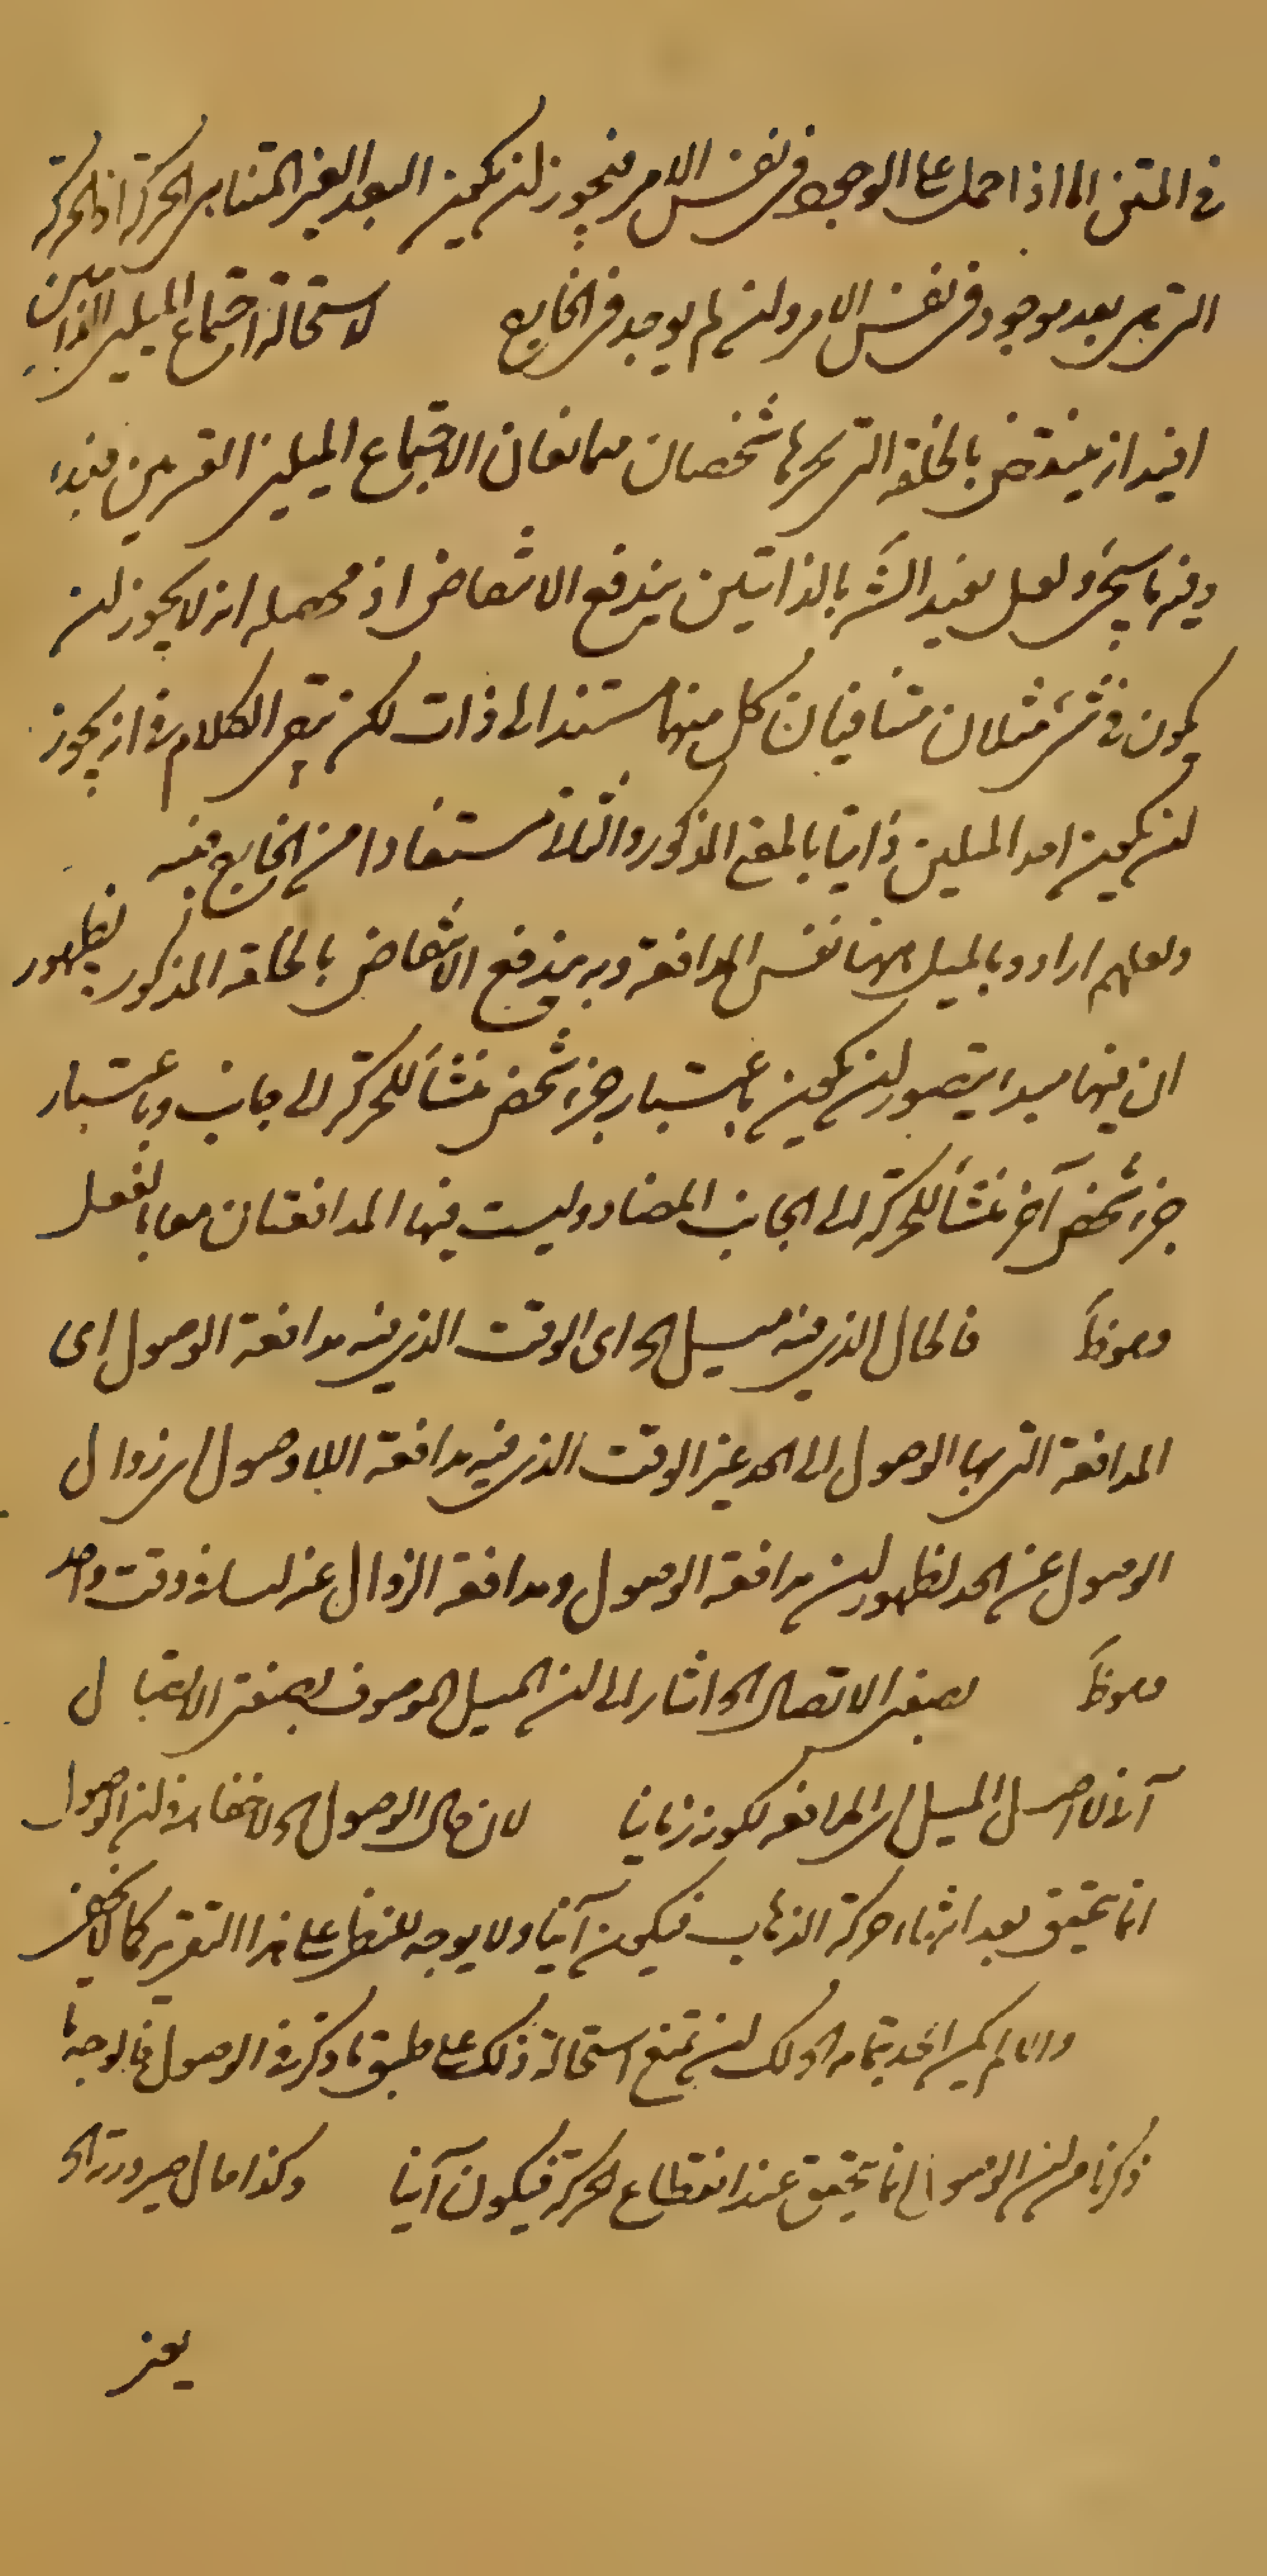 في المتن اما اذا حمل على الوجود في نفس الامر فيجوز ان يكون البعد الغير المتناهي الحركة اذ الحركة
التي هي بعد موجود في نفس الامر وان لم يوجد في الخارج لاستحالة اجتماع الميلين الذاتيين
افيد انه ينتقض بالحلقة التي يجرها شخصان متمانعان لاجتماع الميلين القسريين فيها
وفيه ما سيجئ ولعل تقييد الش بالذاتيين يندفع الانتقاض اذ محصله انه لا يجوز ان
يكون في شئ مثلان متنافيان كل منهما مستند الى ذات لكن بقي الكلام في انه يجوز
ان يكون احد الميلين ذاتيا بالمعنى المذكور والثاني مستفادا من الخارج فيه
ولعلهم ارادوا بالميل ههنا نفس المدافعة وبه يندفع الانتقاض بالحلقة المذكور لظهور
ان فيهما مبدء يتصور ان يكون باعتبار جزء شخص منشأ للحركة الى جانب وباعتبار
جزء شخص آخر منشأ للحركة الى الجانب المضاد وليست فيها المدافعتان معا بالفعل
فالحال الذي فيه ميل الخ اى الوقت الذي فيه مدافعة الوصول اى
المدافعة التي بها الوصول الى الحد غير الوقت الذي فيه مدافعة اللاوصول اى زوال
الوصول عن الحد لظهور ان مدافعة الوصول ومدافعة الزوال عنه ليسا في وقت واحد
بصفة الاتصال الخ اشار الى ان الميل الموصوف بصفة الايصال
آنى لا اصل الميل اى المدافعة لكونه زمانيا لان حال الوصول الخ لا خفاء في ان الوصول
انما يتحقق بعد انتهاء حركة الذهاب فيكون آنيا ولا يوجه للنظر على هذا التقرير كما لا يخفى
والا لم يكن الحد بتمامه الخ لك ان تمنع استحالة ذلك على طبق ما ذكر في الوصول فالوجه ما
ذكرنا من ان الوصول انما يتحقق عند انقطاع الحركة فيكون آنيا وكذا حال صيرورته الخ
يعني